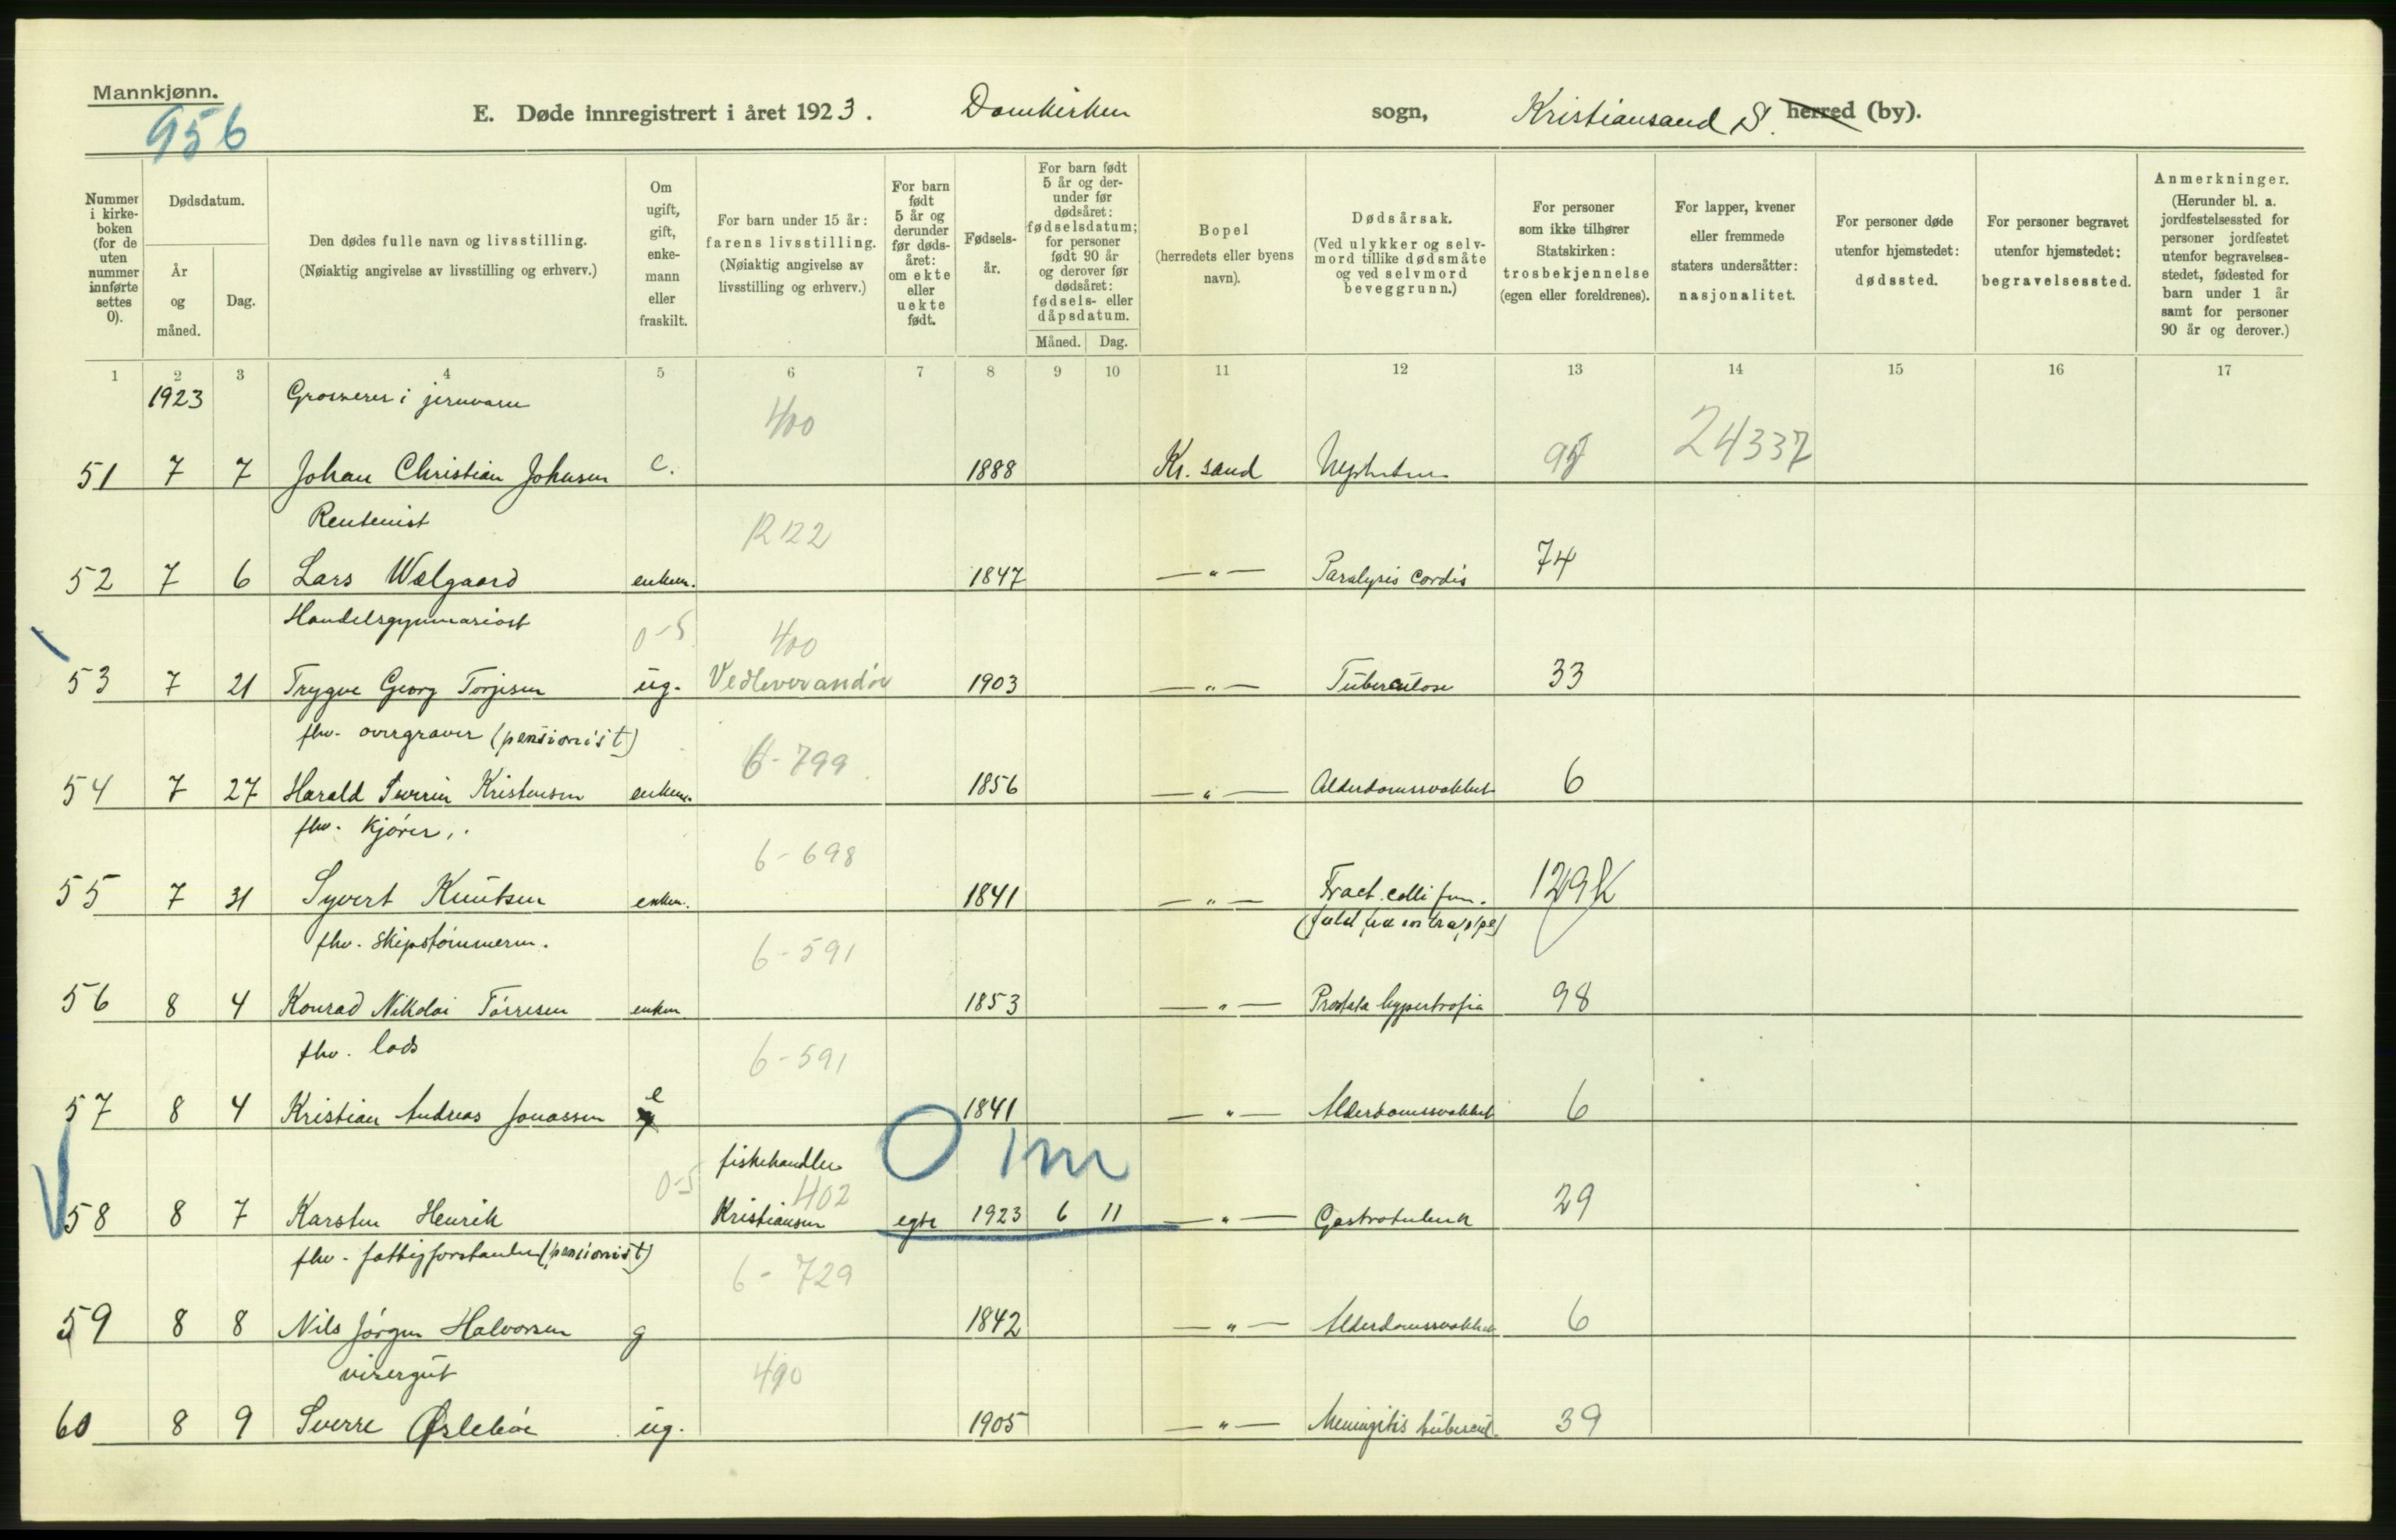 Mannkjønn.
956
E. Døde innregistrert i året 1923. Domkirken sogn, Kristiansand S. herred (by).
Nummer i kirke-boken (for de uten nummer innførte settes 0).
Dødsdatum.
År og måned.
Dag.
Den dødes fulle navn og livsstilling.
(Nøiaktig angivelse av livsstilling og erhverv.)
Om ugift, gift, enke-mann eller fraskilt.
For barn under 15 år: farens livsstilling.
(Nøiaktig angivelse av livsstilling og erhverv.)
For barn født 5 år og derunder før døds-året: om ekte eller uekte født.
Fødsels-år.
For barn født 5 år og der-under før dødsåret: fødselsdatum; for personer født 90 år og derover før dødsåret: fødsels- eller dåpsdatum.
Måned. Dag.
Bopel
(herredets eller byens navn).
Dødsårsak.
(Ved ulykker og selv-mord tillike dødsmåte og ved selvmord beveggrunn.)
For personer som ikke tilhører Statskirken: trosbekjennelse (egen eller foreldrenes).
For lapper, kvener eller fremmede staters undersåtter: nasjonalitet.
For personer døde utenfor hjemstedet: dødssted.
For personer begravet utenfor hjemstedet: begravelsessted.
Anmerkninger.
(Herunder bl. a. jordfestelsessted for personer jordfestet utenfor begravelses-stedet, fødested for barn under 1 år samt for personer 90 år og derover.)
1 2 3 4 5 6 7 8 9 10 11 12 13 14 15 16 17
1923 Grosserer i jernvare 400
51 7 7 Johan Christian Johnsen e. 1888 Kr. sand 24337
Rentenist R122
52 7 6 Lars Wælgaard enkem. 1847 — " — Paralysis cordis 74
Handelsgymnasiast 0-5 400
53 7 21 Trygve Georg Torjesen ug. Vedleverandør 1903 — " — Tuberculose 33
fhv. overgraver (pensionist) 6-799
54 7 27 Harald Severin Kristensen enkem. 1856 — " — Alderdomssvakhet 6
fhv. kjører. 6-698
55 7 31 Syvert Knutsen enkem. 1841 — " — Fract. colli fem. 129K
(fald fra en trappe)
fhv. skipstømmerm. 6-591
56 8 4 Konrad Nikolai Tørresen enkem 1853 — " — Prostata hypertrofia 98
fhv. lods 6-591
57 8 4 Kristian Andreas Jonassen e 1841 — " — Alderdomssvakhet 6
fiskehandler 0 1m
0-5 402
58 8 7 Karsten Henrik Kristiansen egte 1923 6 11 — " — 29
fhv. fattigforstander (pensionist) 6-729
59 8 8 Nils Jørgen Halvorsen g 1842 — " — Alderdomssvakhet 6
visergut 490
60 8 9 Sverre Øslebøe ug. 1905 — " — Meningitis tubercul. 39